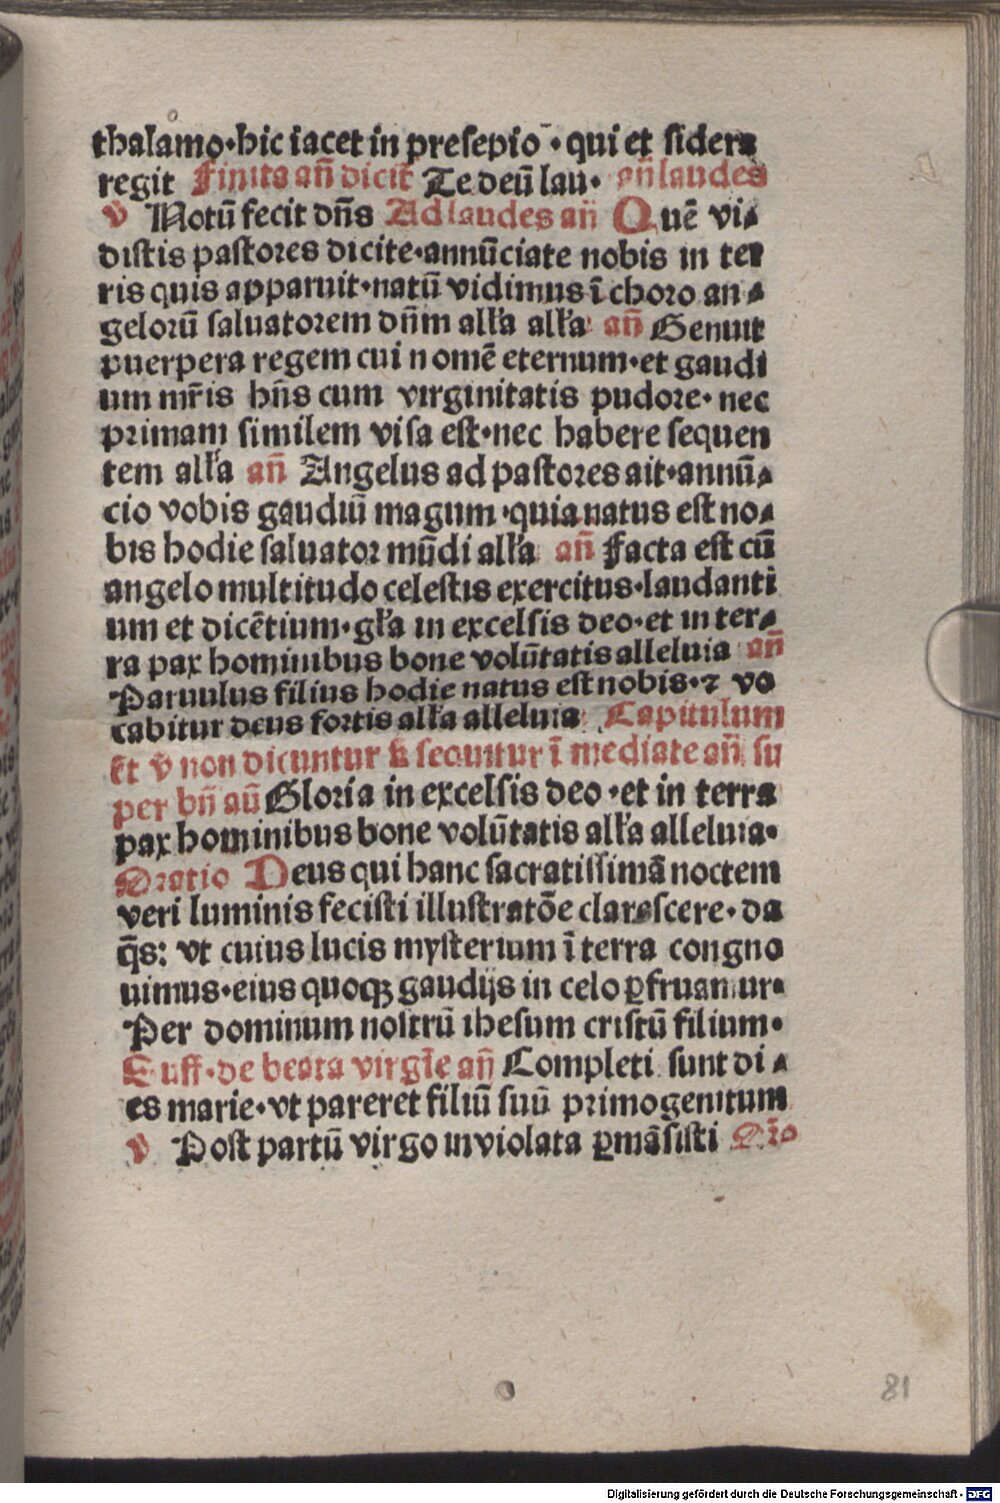 thalamo·hic iacet in presepio·qui et sidera
regit Finita an̄ dicit̄ Te deū lau· an̄ laudes
v Notū fecit dn̄s Ad laudes an̄ Quē vi⸗
distis pastores dicite·annūciate nobis in ter
ris quis apparuit·natū vidimus ī choro an⸗
gelorū saluatorem dn̄m alła alła an̄ Genuit
puerpera regem cui nomē eternum·et gaudi
um mr̄is hn̄s cum virginitatis pudore·nec
primam similem visa est·nec habere sequen
tem alła an̄ Angelus ad pastores ait·annū⸗
cio vobis gaudiū magum·quia natus est no⸗
bis hodie saluator mūdi alła an̄ Facta est cū
angelo multitudo celestis exercitus·laudanti
um et dicētium·gła in excelsis deo·et in ter⸗
ra pax hominibus bone volūtatis alleluia an̄
Paruulus filius hodie natus est nobis·⁊ vo
cabitur deus fortis alła alleluia Capitulum
Et v non dicuntur ß sequitur ī mediate an̄ su
per bn̄ aū Gloria in excelsis deo·et in terra
pax hominibus bone volūtatis alła alleluia·
Oratio Deus qui hanc sacratissimā noctem
veri luminis fecisti illustratōe clarescere·da
q̄s: vt cuius lucis mysterium ī terra congno
uimus·eius quoqꝫ gaudijs in celo ꝑfruamur·
Per dominum nostrū ihesum cristū filium·
Suff·de beata virgīe an̄ Completi sunt di⸗
es marie·vt pareret filiū suū primogenitum
v Post partū virgo inviolata ꝑmāsisti Or̄o
81
Digitalisierung gefördert durch die Deutsche Forschungsgemeinschaft - DFG